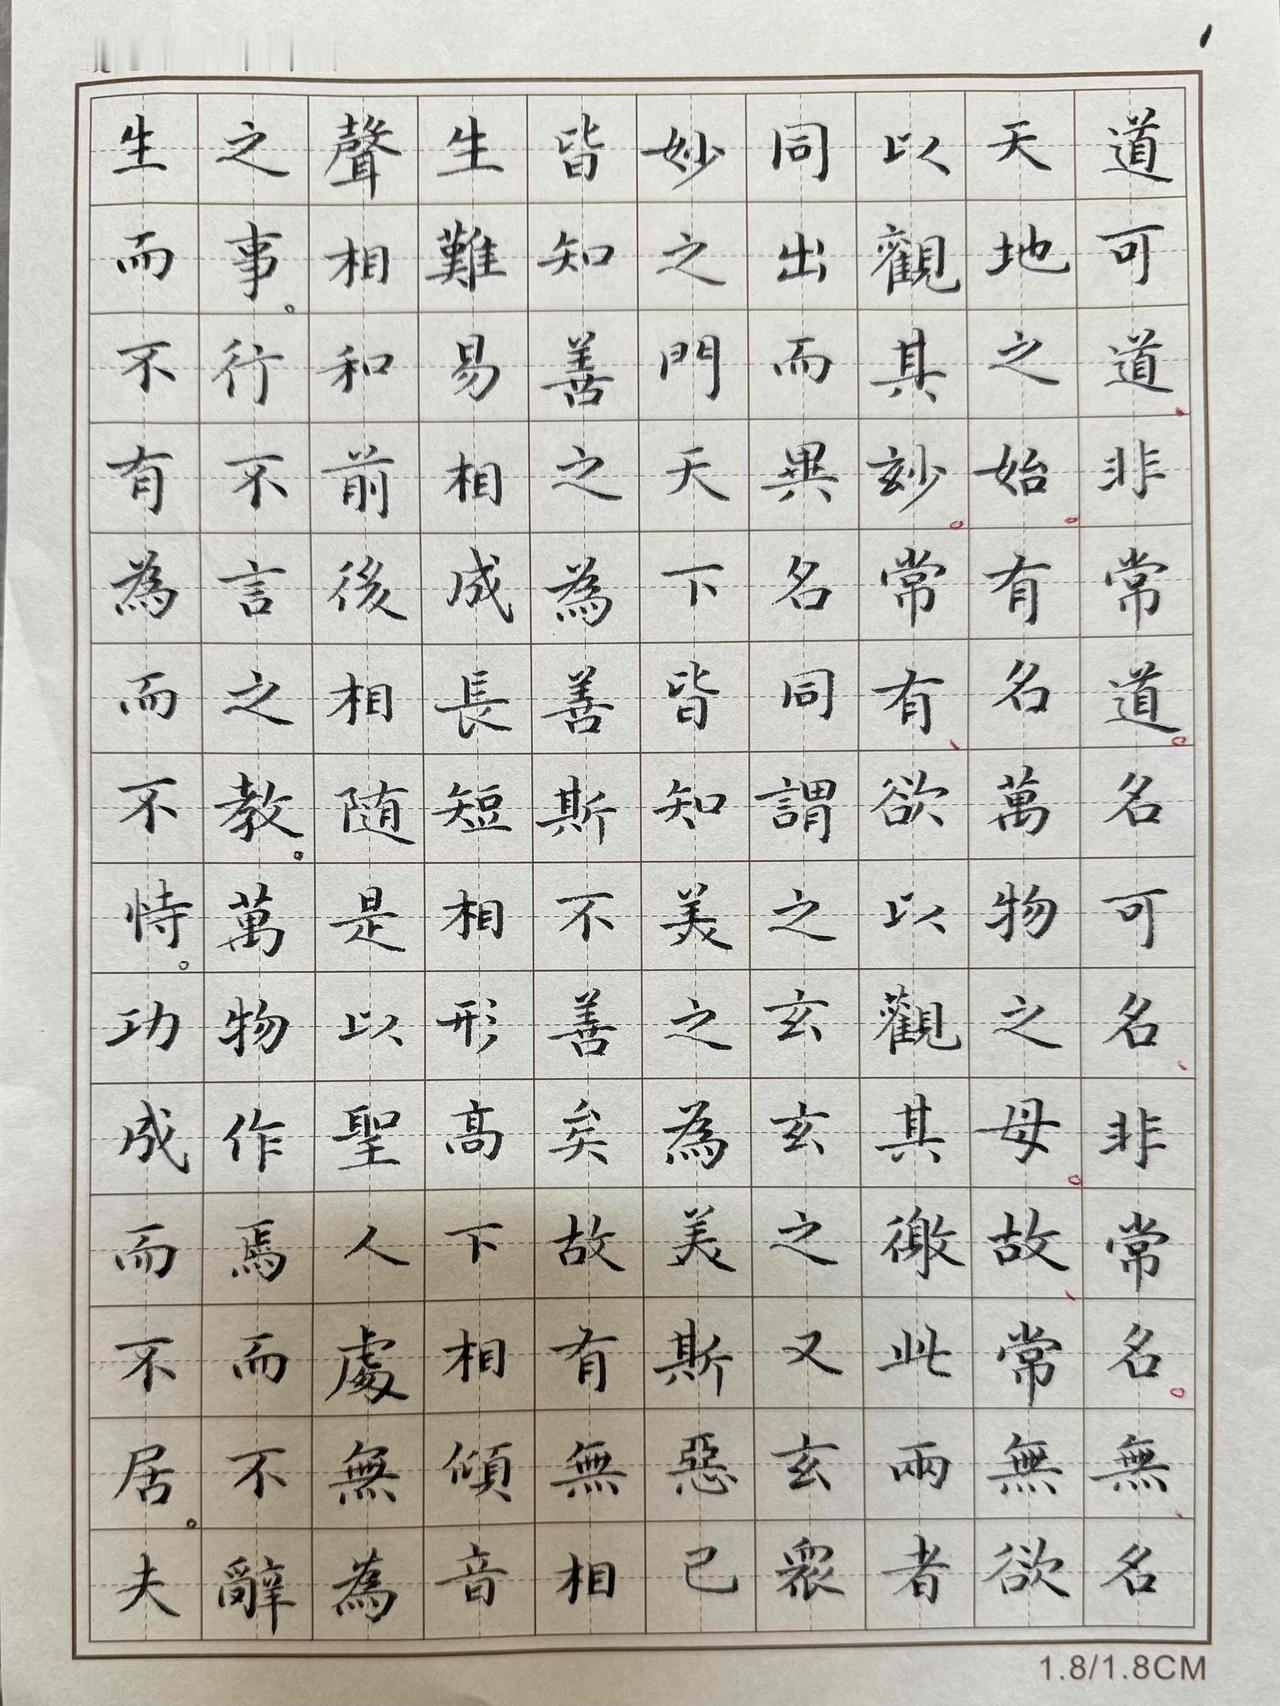 道可道，非常道。名可名、非常名。無、名
天地之始。有名萬物之母。故、常無欲
以觀其玅。常有、欲以觀其徼此兩者
同出而異名同謂之玄玄之又玄眾
妙之門天下皆知美之為美斯惡已
皆知善之為善斯不善矣故有無相
生難易相成長短相形高下相傾音
聲相和前後相随是以聖人處無為
之事。行不言之教。萬物作焉而不辭
生而不有為而不恃。功成而不居。夫
1.8/1.8CM